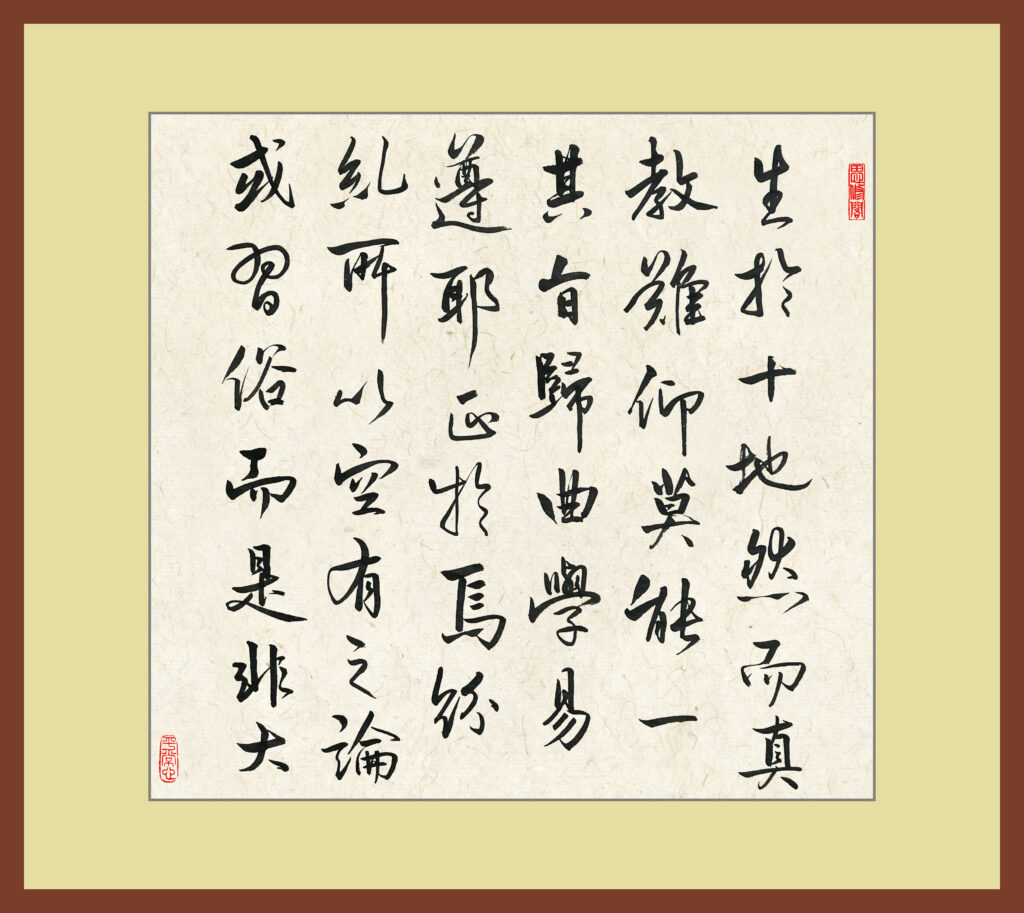 生於十地然而真
教難仰莫能一
其旨歸曲學易
遵耶正於焉紛
糺所以空有之論
或習俗而是非大
思修閣